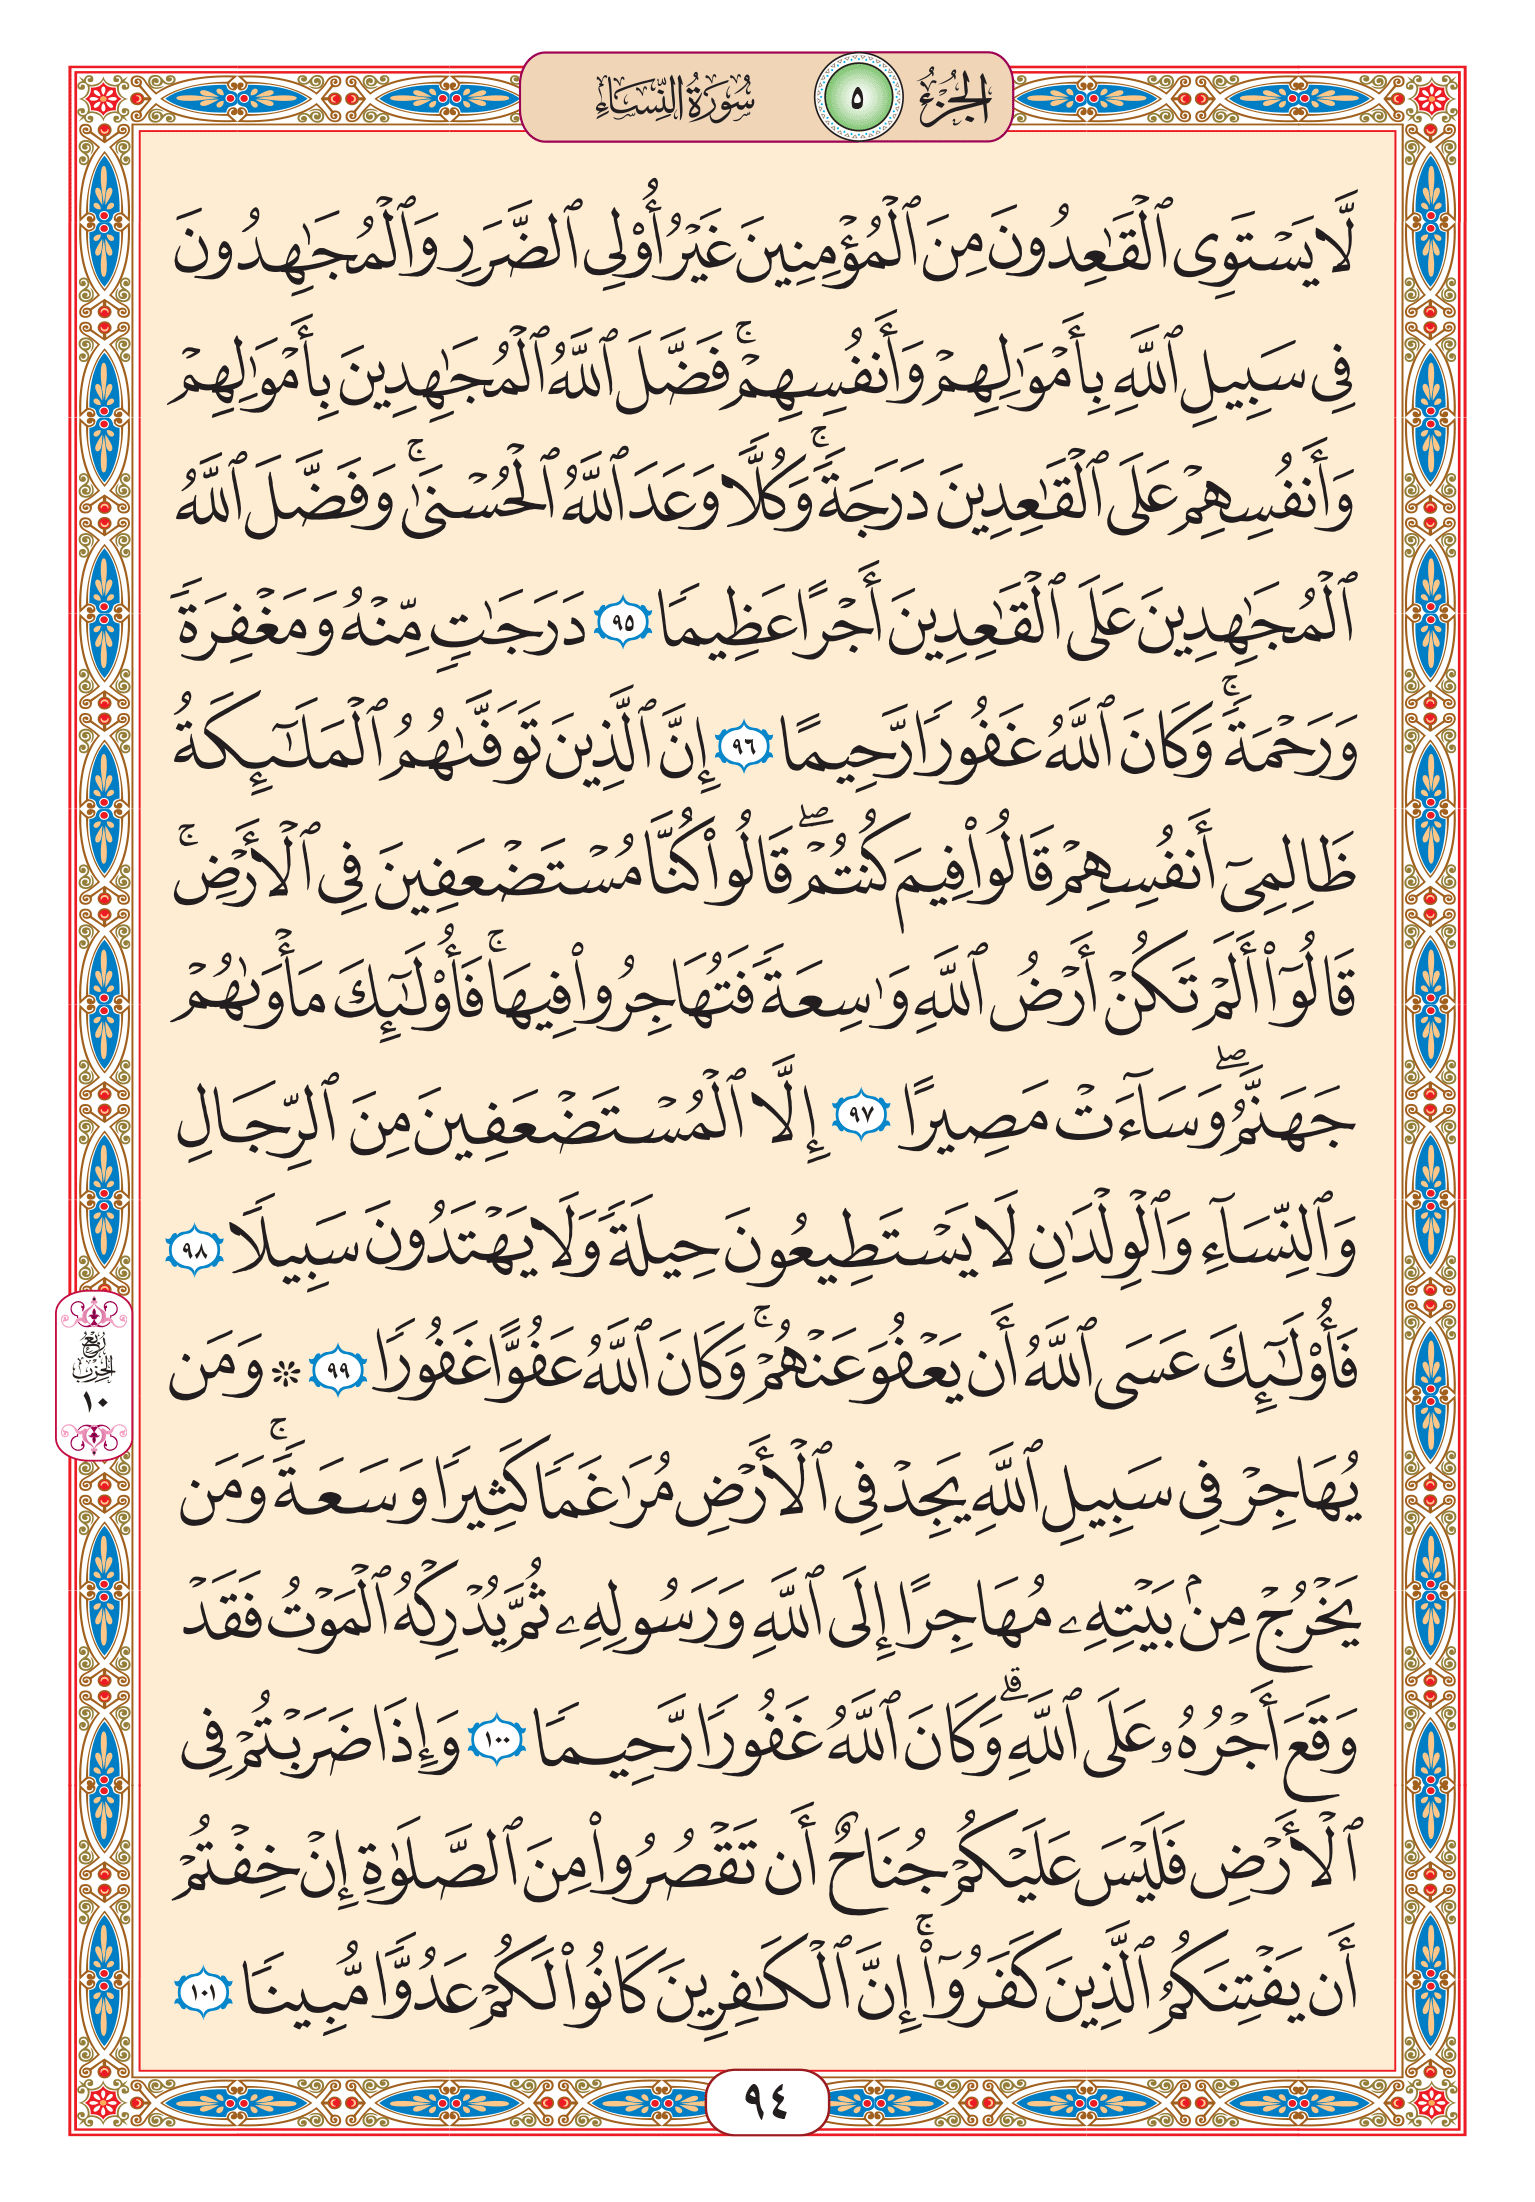 الجزء ٥ سورة النساء
لَّا يَسْتَوِى ٱلْقَٰعِدُونَ مِنَ ٱلْمُؤْمِنِينَ غَيْرُ أُو۟لِى ٱلضَّرَرِ وَٱلْمُجَٰهِدُونَ
فِى سَبِيلِ ٱللَّهِ بِأَمْوَٰلِهِمْ وَأَنفُسِهِمْ ۚ فَضَّلَ ٱللَّهُ ٱلْمُجَٰهِدِينَ بِأَمْوَٰلِهِمْ
وَأَنفُسِهِمْ عَلَى ٱلْقَٰعِدِينَ دَرَجَةً ۚ وَكُلًّا وَعَدَ ٱللَّهُ ٱلْحُسْنَىٰ ۚ وَفَضَّلَ ٱللَّهُ
ٱلْمُجَٰهِدِينَ عَلَى ٱلْقَٰعِدِينَ أَجْرًا عَظِيمًا ٩٥ دَرَجَٰتٍ مِّنْهُ وَمَغْفِرَةً
وَرَحْمَةً ۚ وَكَانَ ٱللَّهُ غَفُورًا رَّحِيمًا ٩٦ إِنَّ ٱلَّذِينَ تَوَفَّىٰهُمُ ٱلْمَلَٰٓئِكَةُ
ظَالِمِىٓ أَنفُسِهِمْ قَالُوا۟ فِيمَ كُنتُمْ ۖ قَالُوا۟ كُنَّا مُسْتَضْعَفِينَ فِى ٱلْأَرْضِ ۚ
قَالُوٓا۟ أَلَمْ تَكُنْ أَرْضُ ٱللَّهِ وَٰسِعَةً فَتُهَاجِرُوا۟ فِيهَا ۚ فَأُو۟لَٰٓئِكَ مَأْوَىٰهُمْ
جَهَنَّمُ ۖ وَسَآءَتْ مَصِيرًا ٩٧ إِلَّا ٱلْمُسْتَضْعَفِينَ مِنَ ٱلرِّجَالِ
وَٱلنِّسَآءِ وَٱلْوِلْدَٰنِ لَا يَسْتَطِيعُونَ حِيلَةً وَلَا يَهْتَدُونَ سَبِيلًا ٩٨
فَأُو۟لَٰٓئِكَ عَسَى ٱللَّهُ أَن يَعْفُوَ عَنْهُمْ ۚ وَكَانَ ٱللَّهُ عَفُوًّا غَفُورًا ٩٩ * وَمَن
ربع الحزب
١٠
يُهَاجِرْ فِى سَبِيلِ ٱللَّهِ يَجِدْ فِى ٱلْأَرْضِ مُرَٰغَمًا كَثِيرًا وَسَعَةً ۚ وَمَن
يَخْرُجْ مِنۢ بَيْتِهِۦ مُهَاجِرًا إِلَى ٱللَّهِ وَرَسُولِهِۦ ثُمَّ يُدْرِكْهُ ٱلْمَوْتُ فَقَدْ
وَقَعَ أَجْرُهُۥ عَلَى ٱللَّهِ ۗ وَكَانَ ٱللَّهُ غَفُورًا رَّحِيمًا ١٠٠ وَإِذَا ضَرَبْتُمْ فِى
ٱلْأَرْضِ فَلَيْسَ عَلَيْكُمْ جُنَاحٌ أَن تَقْصُرُوا۟ مِنَ ٱلصَّلَوٰةِ إِنْ خِفْتُمْ
أَن يَفْتِنَكُمُ ٱلَّذِينَ كَفَرُوٓا۟ ۚ إِنَّ ٱلْكَٰفِرِينَ كَانُوا۟ لَكُمْ عَدُوًّا مُّبِينًا ١٠١
٩٤